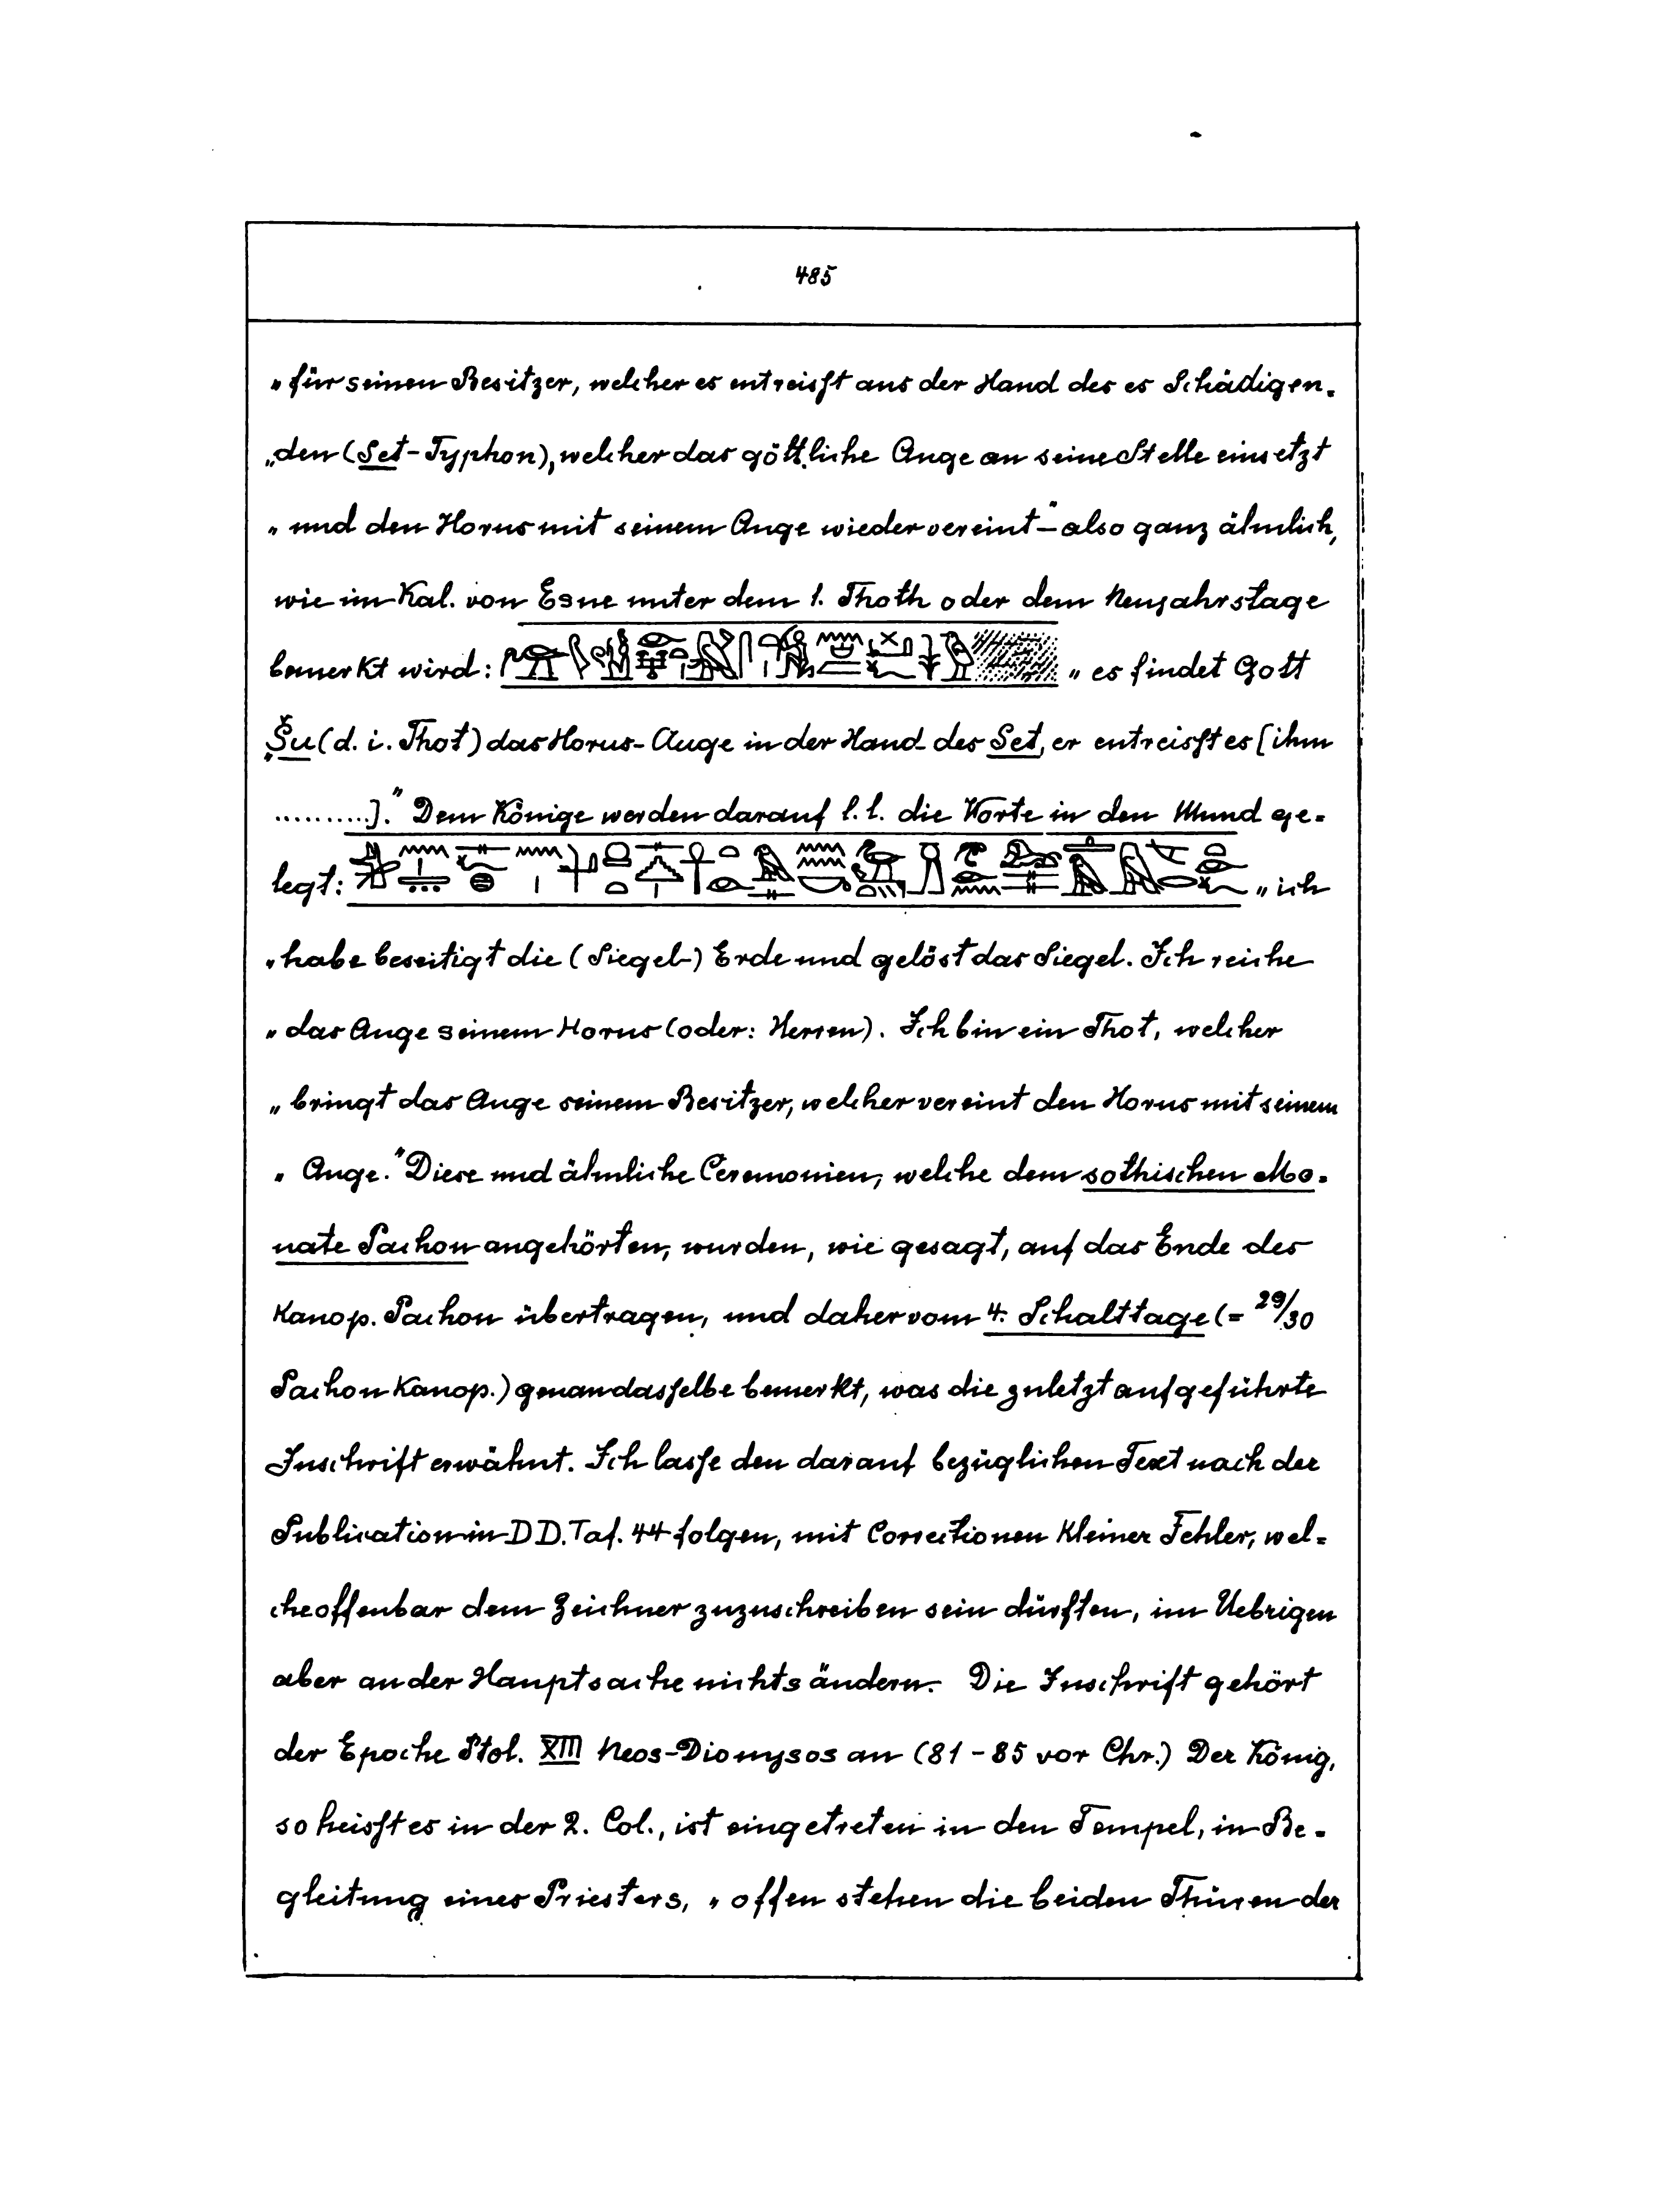 485
„für seinen Besitzer, welcher es entreisſt aus der Hand des es Schädigen-
„den (Set-Typhon), welcher das göttliche Auge an seine Stelle einsetzt
„und den Horus mit seinem Auge wieder vereint“ – also ganz ähnlich,
wie im Kal. von Esne unter dem 1. Thoth oder dem Neujahrstage
bemerkt wird: „es findet Gott
„Šu (d. i. Thot) das Horus-Auge in der Hand des Set, er entreisſt es [ihm
..........].“ Dem Könige werden darauf l. l. die Worte in den Mund ge-
legt: „ich
„habe beseitigt die (Siegel-) Erde und gelöst das Siegel. Ich reiche
„das Auge seinem Horus (oder: Herren). Ich bin ein Thot, welcher
„bringt das Auge seinem Besitzer, welcher vereint den Horus mit seinem
„Auge.“ Diese und ähnliche Ceremonien, welche dem sothischen Mo-
nate Pachon angehörten, wurden, wie gesagt, auf das Ende des
Kanop. Pachon übertragen, und daher vom 4. Schalttage (= 29/30
Pachon Kanop.) genau dasſelbe bemerkt, was die zuletzt aufgeführte
Inschrift erwähnt. Ich lasſe den darauf bezüglichen Text nach der
Publication in DD. Taf. 44 folgen, mit Correctionen kleiner Fehler, wel-
che offenbar dem Zeichner zuzuschreiben sein dürften, im Uebrigen
aber an der Hauptsache nichts ändern. Die Inschrift gehört
der Epoche Ptol. XIII Neos-Dionysos an (81-85 vor Chr.) Der König,
so heisſt es in der 2. Col., ist eingetreten in den Tempel, in Be-
gleitung eines Priesters, „offen stehen die beiden Thüren der